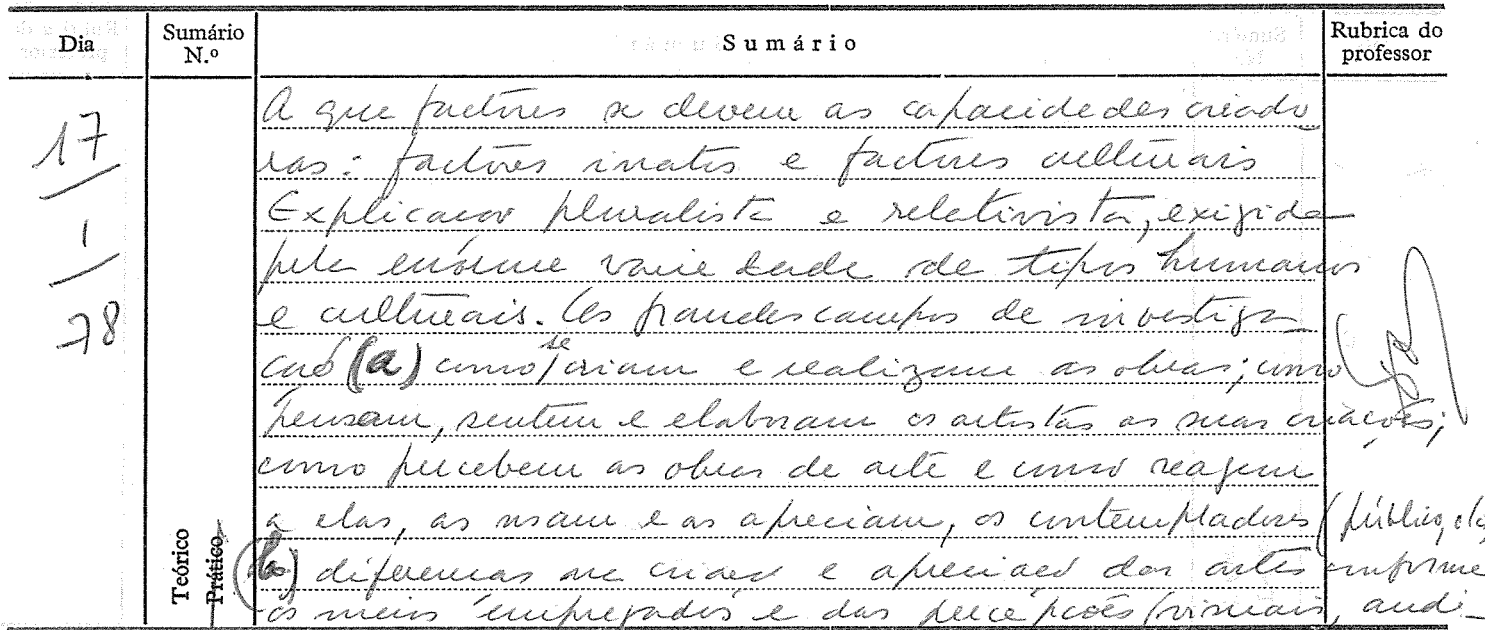 Dia
Sumário N.º
Sumário
Rubrica do professor
17
1
78
A que factores se devem as capacidades criado
ras: factores inatos e factores culturais
Explicação pluralista e relativista, exigida
pela enorme variedade de tipos humanos
e culturais. Os grandes campos de investiga
ção (a) como se criam e realizam as obras; como
pensam, sentem e elaboram os artistas as suas criações;
como percebem as obras de arte e como reagem
a elas, as usam e as apreciam, os contempladores (público, etc,
(b) diferenças na criação e apreciação das artes conforme
os meios empregados e das percepções (visuais, audi-
Teórico
Prático